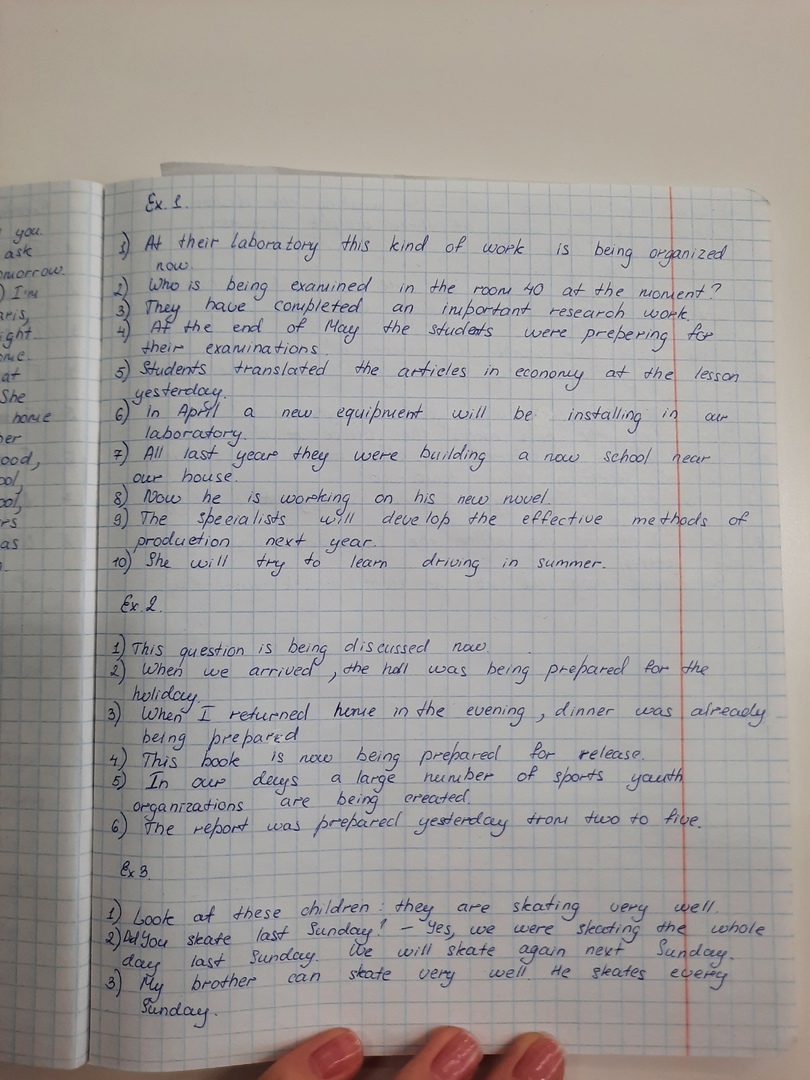 you.
ask
omorrow.
) I'm
aris,
ight
ome.
at
She
home
her
ood,
ool,
ool,
rs
as
Ex. 1.
1) At their laboratory this kind of work is being organized
now.
2) Who is being examined in the room 40 at the moment?
3) They have completed an important research work.
4) At the end of May the students were prepering for
their examinations
5) Students translated the articles in economy at the lesson
yesterday.
6) In April a new equipment will be installing in our
laboratory.
7) All last year they were building a now school near
our house.
8) Now he is working on his new novel.
9) The specialists will develop the effective methods of
production next year.
10) She will try to learn driving in summer.
Ex. 2.
1) This question is being discussed now.
2) When we arrived, the hall was being prepared for the
holiday.
3) When I returned home in the evening, dinner was already
being prepared
4) This book is now being prepared for release.
5) In our days a large number of sports youth
organizations are being created.
6) The report was prepared yesterday from two to five.
Ex 3.
1) Look at these children: they are skating very well.
2) Did You skate last Sunday? - Yes, we were skating the whole
day last Sunday. We will skate again next Sunday.
3) My brother can skate very well. He skates every
Sunday.